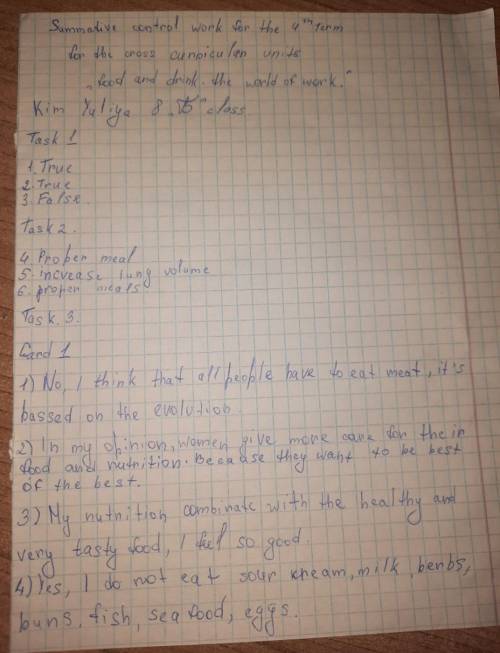 Summative control work for the 4th term
for the cross curricular units
"food and drink. the world of work."
Kim Yuliya 8 "Б" class
Task 1
1. True
2. True
3. False.
Task 2.
4. Proper meal
5. increase lung volume
6. proper meals
Task. 3.
Card 1
1) No, I think that all people have to eat meat, it's
bassed on the evolution.
2) In my opinion, women give more care for their
food and nutrition. Because they want to be best
of the best.
3) My nutrition combinate with the healthy and
very tasty food, I feel so good.
4) Yes, I do not eat sour kream, milk,
buns, fish, sea food, eggs.